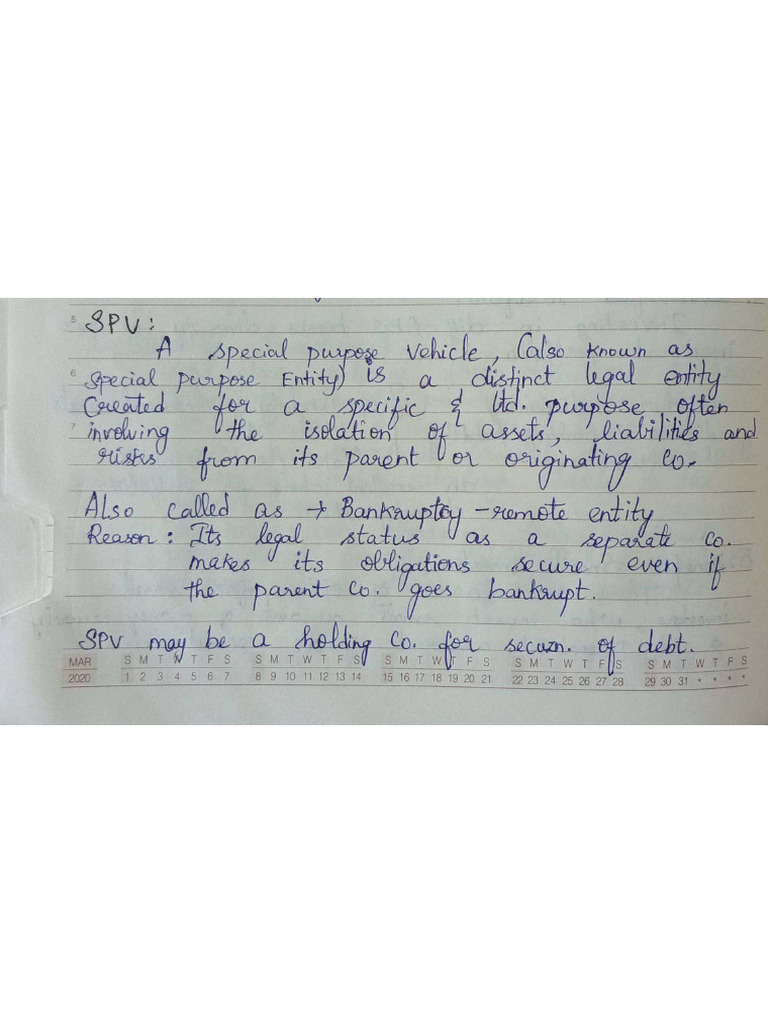 5 SPV:
A special purpose vehicle, (also known as
6 special purpose Entity) is a distinct legal entity
Created for a specific & ltd. purpose often
7 involving the isolation of assets, liabilities and
risks from its parent or originating co.
Also called as → Bankruptcy-remote entity
Reason: Its legal status as a separate co.
makes its obligations secure even if
the parent co. goes bankrupt.
SPV may be a holding co. for secuzn. of debt.
MAR S M T W T F S S M T W T F S S M T W T F S S M T W T F S S M T W T F S
2020 1 2 3 4 5 6 7 8 9 10 11 12 13 14 15 16 17 18 19 20 21 22 23 24 25 26 27 28 29 30 31 * * * *